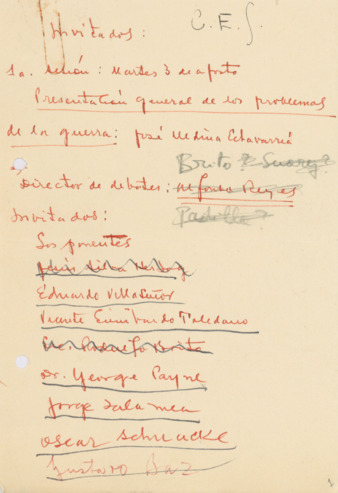 C.E.S.
Invitados:
1a. sesión: Martes 3 de agosto
Presentación general de los problemas
de la guerra: José Medina Echavarría
Brito? Suarez?
Director de debates: Alfonso Reyes
Padilla?
Invitados:
Los ponentes
Jesús Silva Herzog
Eduardo Villaseñor
Vicente Lombardo Toledano
Dr. George Payne
Jorge Zalamea
Oscar Schnacke
Gustavo Baz